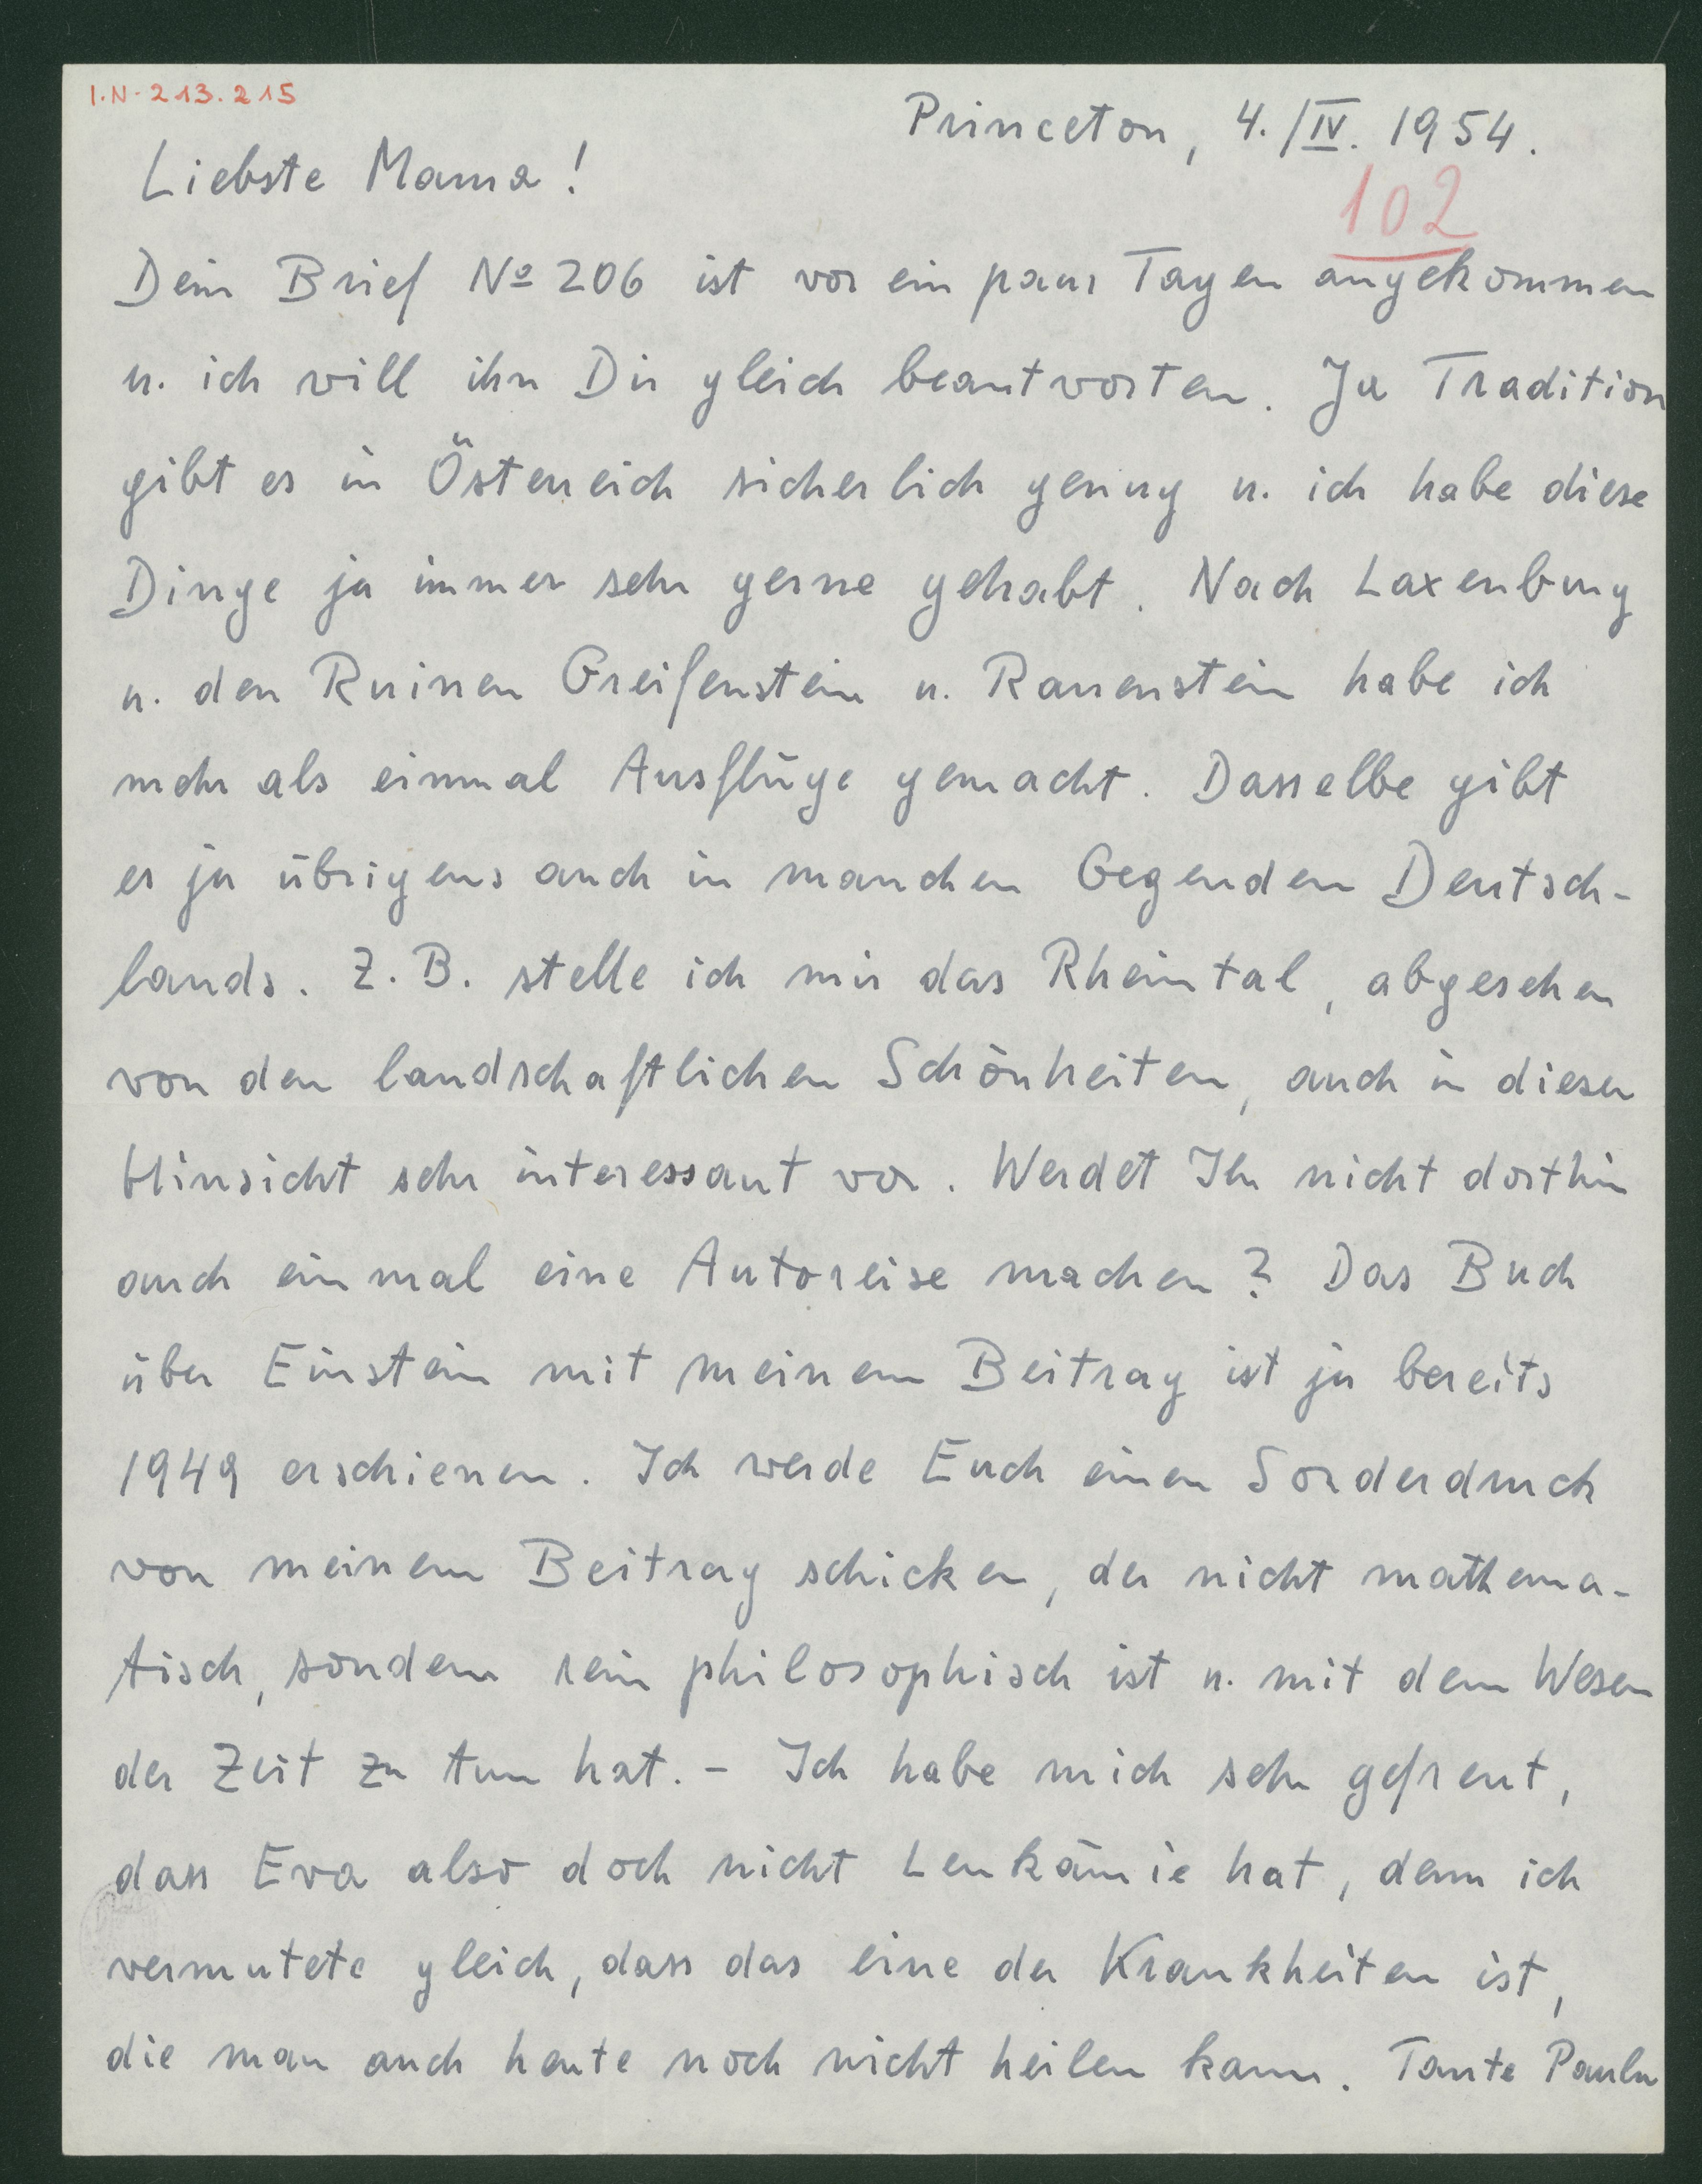 I.N. 213.215
Princeton, 4./IV. 1954.
Liebste Mama!
102
Dein Brief Nº 206 ist vor ein paar Tagen angekommen
u. ich will ihn Dir gleich beantworten. Ja Tradition
gibt es in Österreich sicherlich genug u. ich habe diese
Dinge ja immer sehr gerne gehabt. Nach Laxenburg
u. den Ruinen Greifenstein u. Rauenstein habe ich
mehr als einmal Ausflüge gemacht. Dasselbe gibt
es ja übrigens auch in manchen Gegenden Deutsch-
lands. Z.B. stelle ich mir das Rheintal, abgesehen
von den landschaftlichen Schönheiten, auch in dieser
Hinsicht sehr interessant vor. Werdet Ihr nicht dorthin
auch einmal eine Autoreise machen? Das Buch
über Einstein mit meinem Beitrag ist ja bereits
1949 erschienen. Ich werde Euch einen Sonderdruck
von meinem Beitrag schicken, der nicht mathema-
tisch, sondern rein philosophisch ist u. mit dem Wesen
der Zeit zu tun hat. – Ich habe mich sehr gefreut,
dass Eva also doch nicht Leukämie hat, denn ich
vermutete gleich, dass das eine der Krankheiten ist,
die man auch heute noch nicht heilen kann. Tante Paula